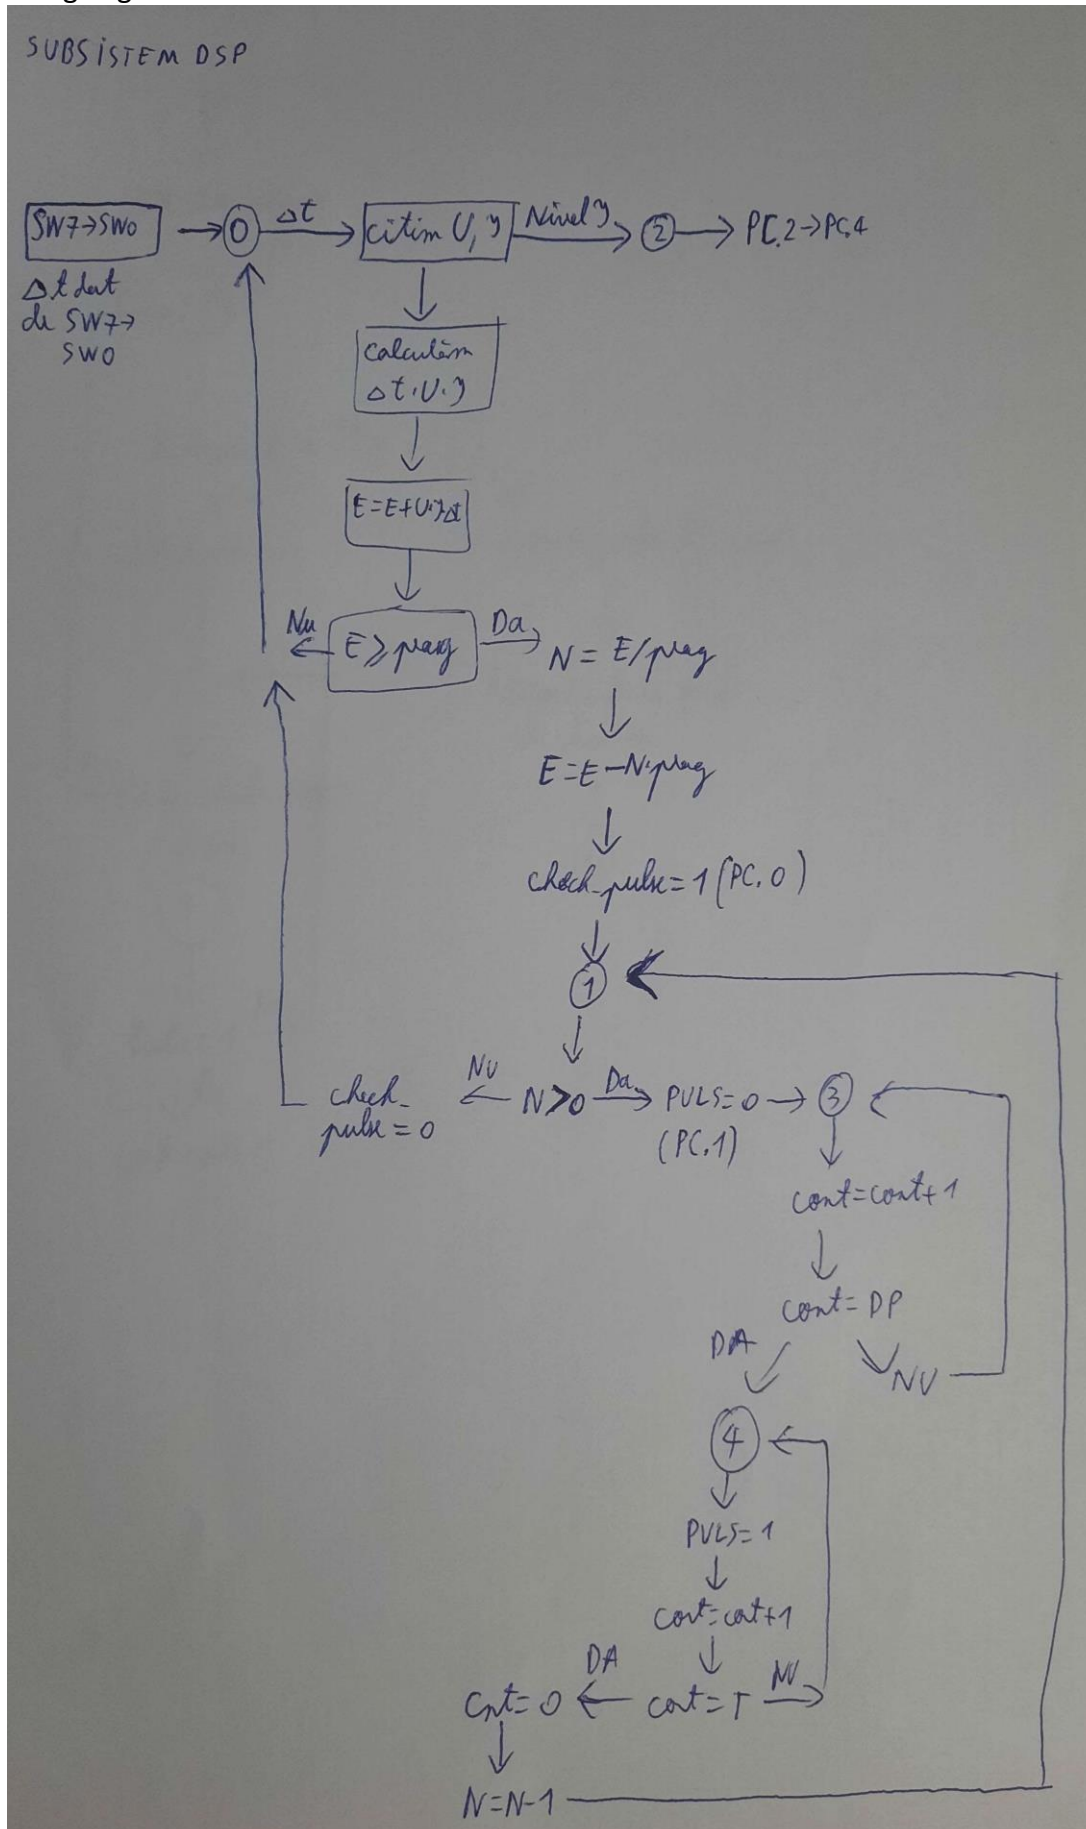 SUBSISTEM DSP
SW7→SW0
0
Δt
citim U, y
Nivel y
2
PC.2→PC.4
Δt dat
de SW7→
SW0
Calculăm
Δt.U.y
E=E+U.y.Δt
Nu
E≥prag
Da
N = E/prag
E=E-N.prag
check_pulse=1 (PC.0)
1
check_
pulse=0
NU
N>0
Da
PULS=0
(PC.1)
3
cont=cont+1
cont=DP
DA
NU
4
PULS=1
cont=cont+1
Cnt=0
DA
cont=T
NU
N=N-1